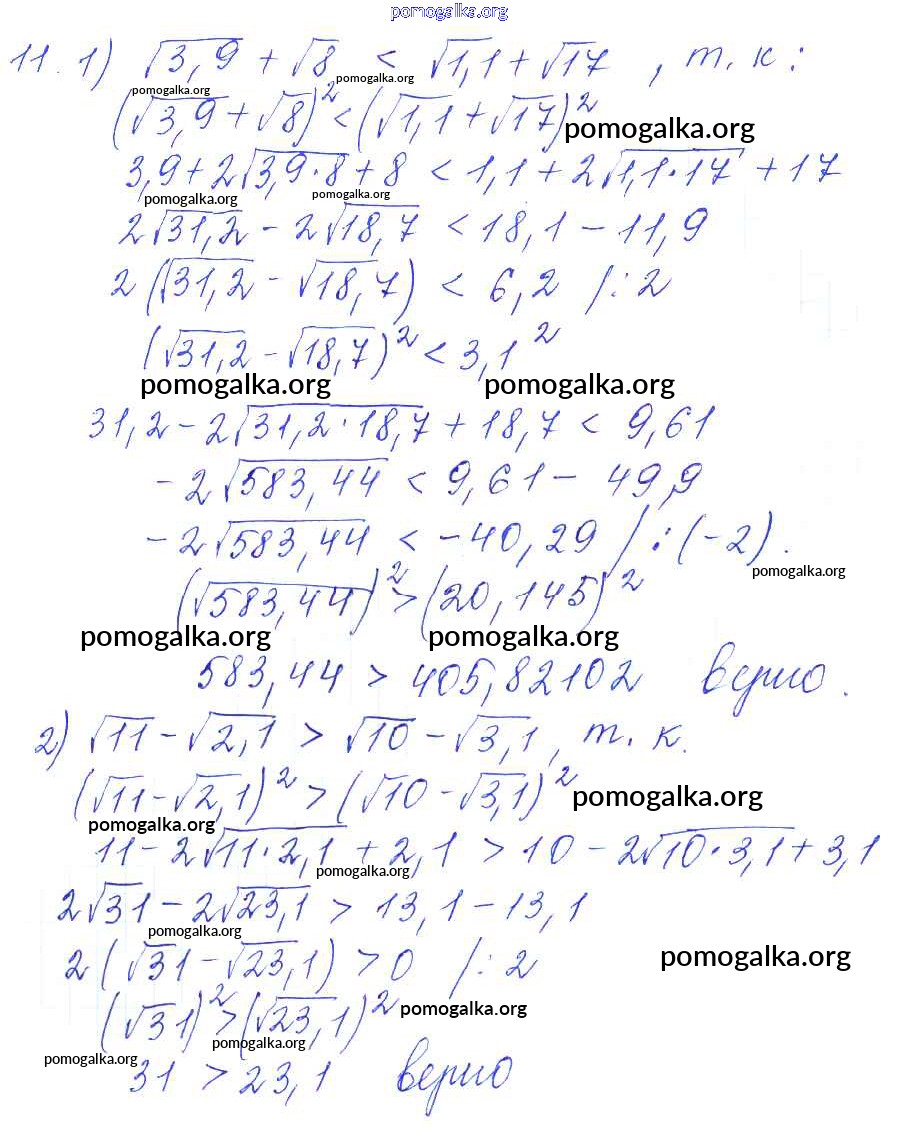 pomogalka.org
11. 1) √3,9 + √8 < √1,1 + √17 , т.к:
pomogalka.org pomogalka.org
(√3,9 + √8)² < (√1,1 + √17)²
pomogalka.org
3,9 + 2√3,9·8 + 8 < 1,1 + 2√1,1·17 + 17
pomogalka.org pomogalka.org
2√31,2 - 2√18,7 < 18,1 - 11,9
2 (√31,2 - √18,7) < 6,2 /: 2
(√31,2 - √18,7)² < 3,1²
pomogalka.org pomogalka.org
31,2 - 2√31,2·18,7 + 18,7 < 9,61
- 2√583,44 < 9,61 - 49,9
- 2√583,44 < -40,29 /: (-2).
pomogalka.org
(√583,44)² > (20,145)²
pomogalka.org pomogalka.org
583,44 > 405,82102 верно.
2) √11 - √2,1 > √10 - √3,1, т.к.
(√11 - √2,1)² > (√10 - √3,1)²
pomogalka.org
pomogalka.org
11 - 2√11·2,1 + 2,1 > 10 - 2√10·3,1 + 3,1
pomogalka.org
2√31 - 2√23,1 > 13,1 - 13,1
pomogalka.org
2 (√31 - √23,1) > 0 /: 2
pomogalka.org
(√31)² > (√23,1)²
pomogalka.org
pomogalka.org
pomogalka.org
31 > 23,1 верно